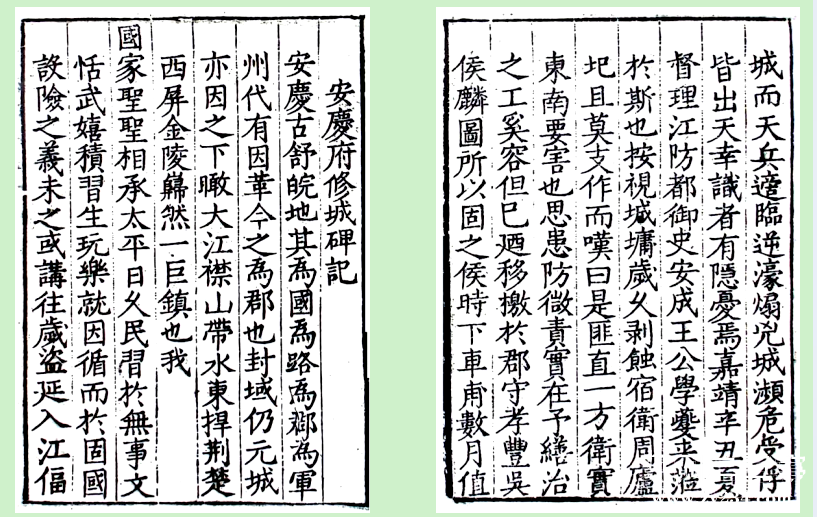 安慶府修城碑記
安慶古舒皖地其爲國爲路爲郡爲軍
州代有因革今之爲郡也封域仍元城
亦因之下瞰大江襟山帶水東捍荆楚
西屏金陵巋然一巨鎮也我
國家聖聖相承太平日久民習於無事文
恬武嬉積習生玩樂就因循而於固國
設險之義未之或講往歲盜延入江偪
城而天兵適臨逆濠煽兇城瀕危受俘
皆出天幸識者有隱憂焉嘉靖辛丑夏
督理江防都御史安成王公學夔来蒞
於斯也按視城墉歲久剥蝕宿衛周廬
圯且莫支作而嘆曰是匪直一方衛實
東南要害也思患防微責實在予繕治
之工奚容但已廼移檄於郡守孝豐吳
侯麟圖所以固之侯時下車甫數月值